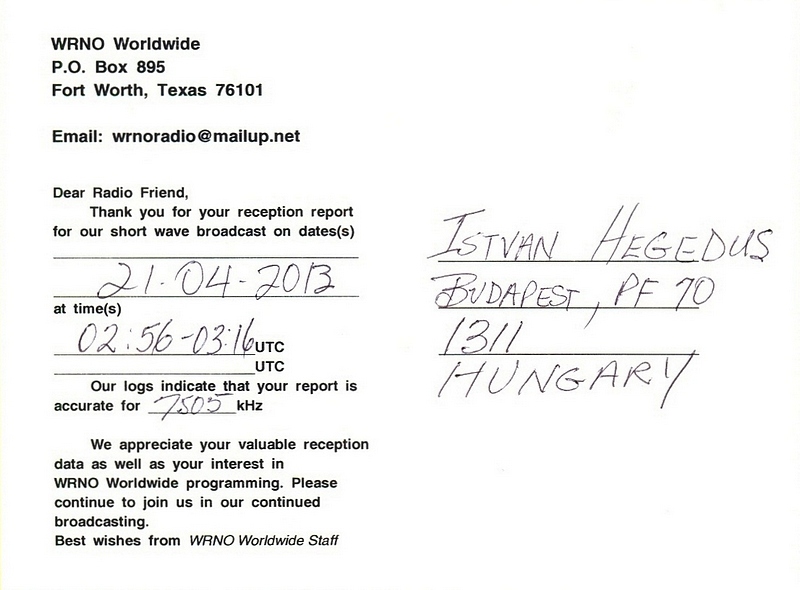 WRNO Worldwide
P.O. Box 895
Fort Worth, Texas 76101
Email: wrnoradio@mailup.net
Dear Radio Friend,
Thank you for your reception report
for our short wave broadcast on dates(s)
21-04-2013
at time(s)
02:56-03:16 UTC
UTC
Our logs indicate that your report is
accurate for 7505 kHz
We appreciate your valuable reception
data as well as your interest in
WRNO Worldwide programming. Please
continue to join us in our continued
broadcasting.
Best wishes from WRNO Worldwide Staff
ISTVAN HEGEDUS
BUDAPEST, PF 70
1311
HUNGARY